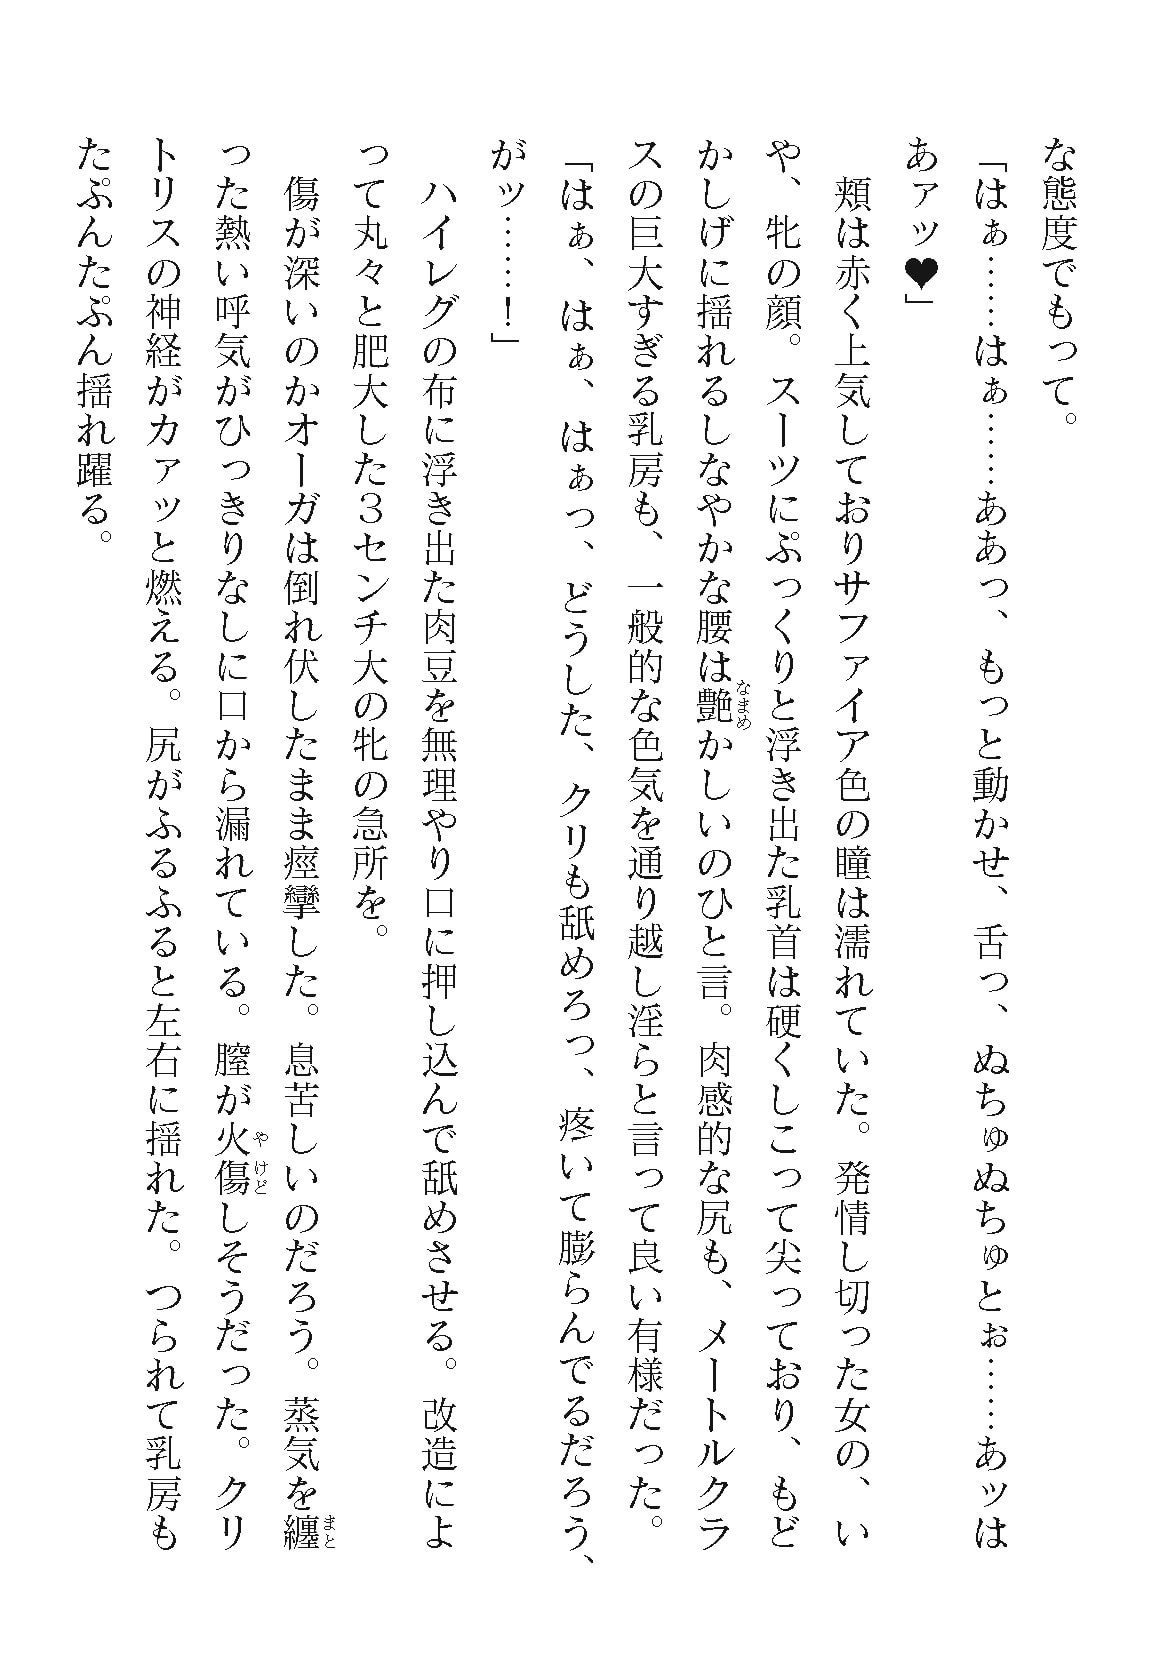 な態度でもって。
「はぁ……はぁ……ああっ、もっと動かせ、舌っ、ぬちゅぬちゅとぉ……あッは
あァッ♥」
　頬は赤く上気しておりサファイア色の瞳は濡れていた。発情し切った女の、い
や、牝の顔。スーツにぷっくりと浮き出た乳首は硬くしこって尖っており、もど
かしげに揺れるしなやかな腰は艶かしいのひと言。肉感的な尻も、メートルクラ
スの巨大すぎる乳房も、一般的な色気を通り越し淫らと言って良い有様だった。
「はぁ、はぁ、はぁっ、どうした、クリも舐めろっ、疼いて膨らんでるだろう、
がッ……！」
　ハイレグの布に浮き出た肉豆を無理やり口に押し込んで舐めさせる。改造によ
って丸々と肥大した３センチ大の牝の急所を。
　傷が深いのかオーガは倒れ伏したまま痙攣した。息苦しいのだろう。蒸気を纏
った熱い呼気がひっきりなしに口から漏れている。膣が火傷しそうだった。クリ
トリスの神経がカァッと燃える。尻がふるふると左右に揺れた。つられて乳房も
たぷんたぷん揺れ躍る。